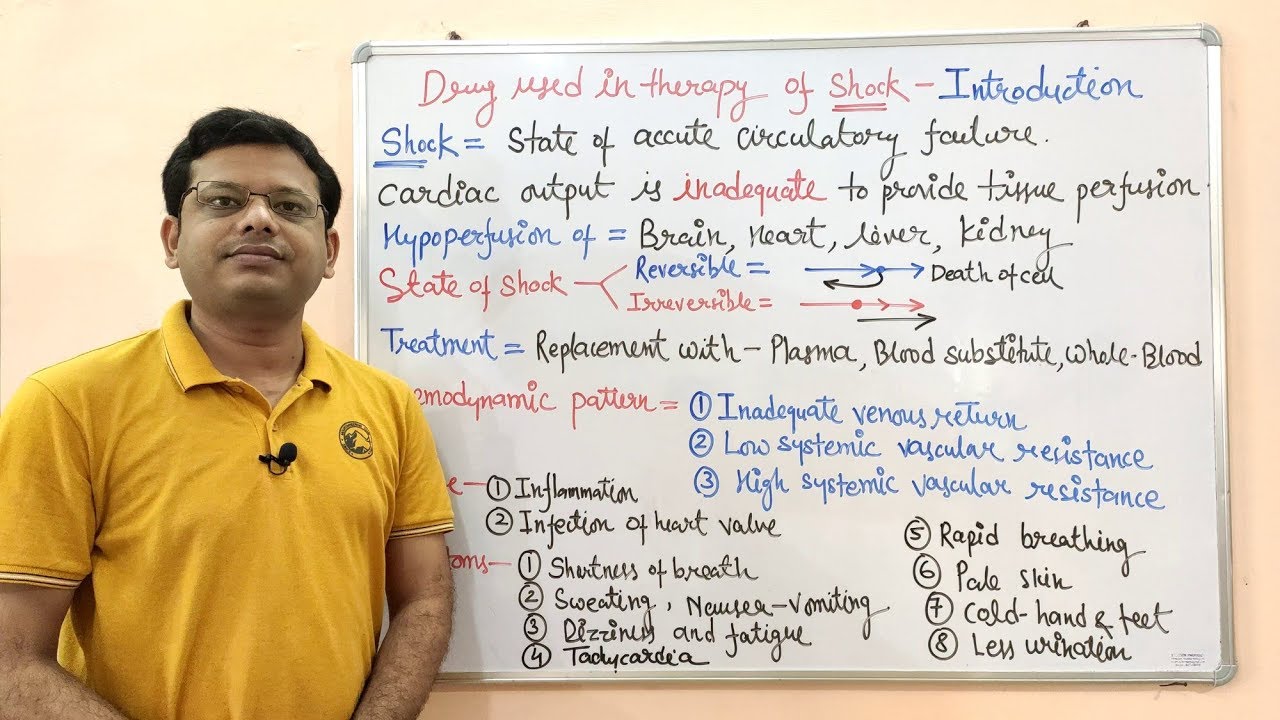 Drug used in therapy of Shock - Introduction
Shock = State of accute circulatory failure.
Cardiac output is inadequate to provide tissue perfusion.
Hypoperfusion of = Brain, Heart, liver, kidney
State of Shock
Reversible = Death of cell
Irreversible =
Treatment = Replacement with - Plasma, Blood substitute, Whole-Blood
emodynamic pattern = ① Inadequate venous return
② Low systemic vascular resistance
③ High systemic vascular resistance
e - ① Inflammation
② Infection of heart valve
oms - ① Shortness of breath
② Sweating, Nausea-vomiting
③ Dizziness and fatigue
④ Tachycardia
⑤ Rapid breathing
⑥ Pale skin
⑦ Cold-hand & feet
⑧ Less urination